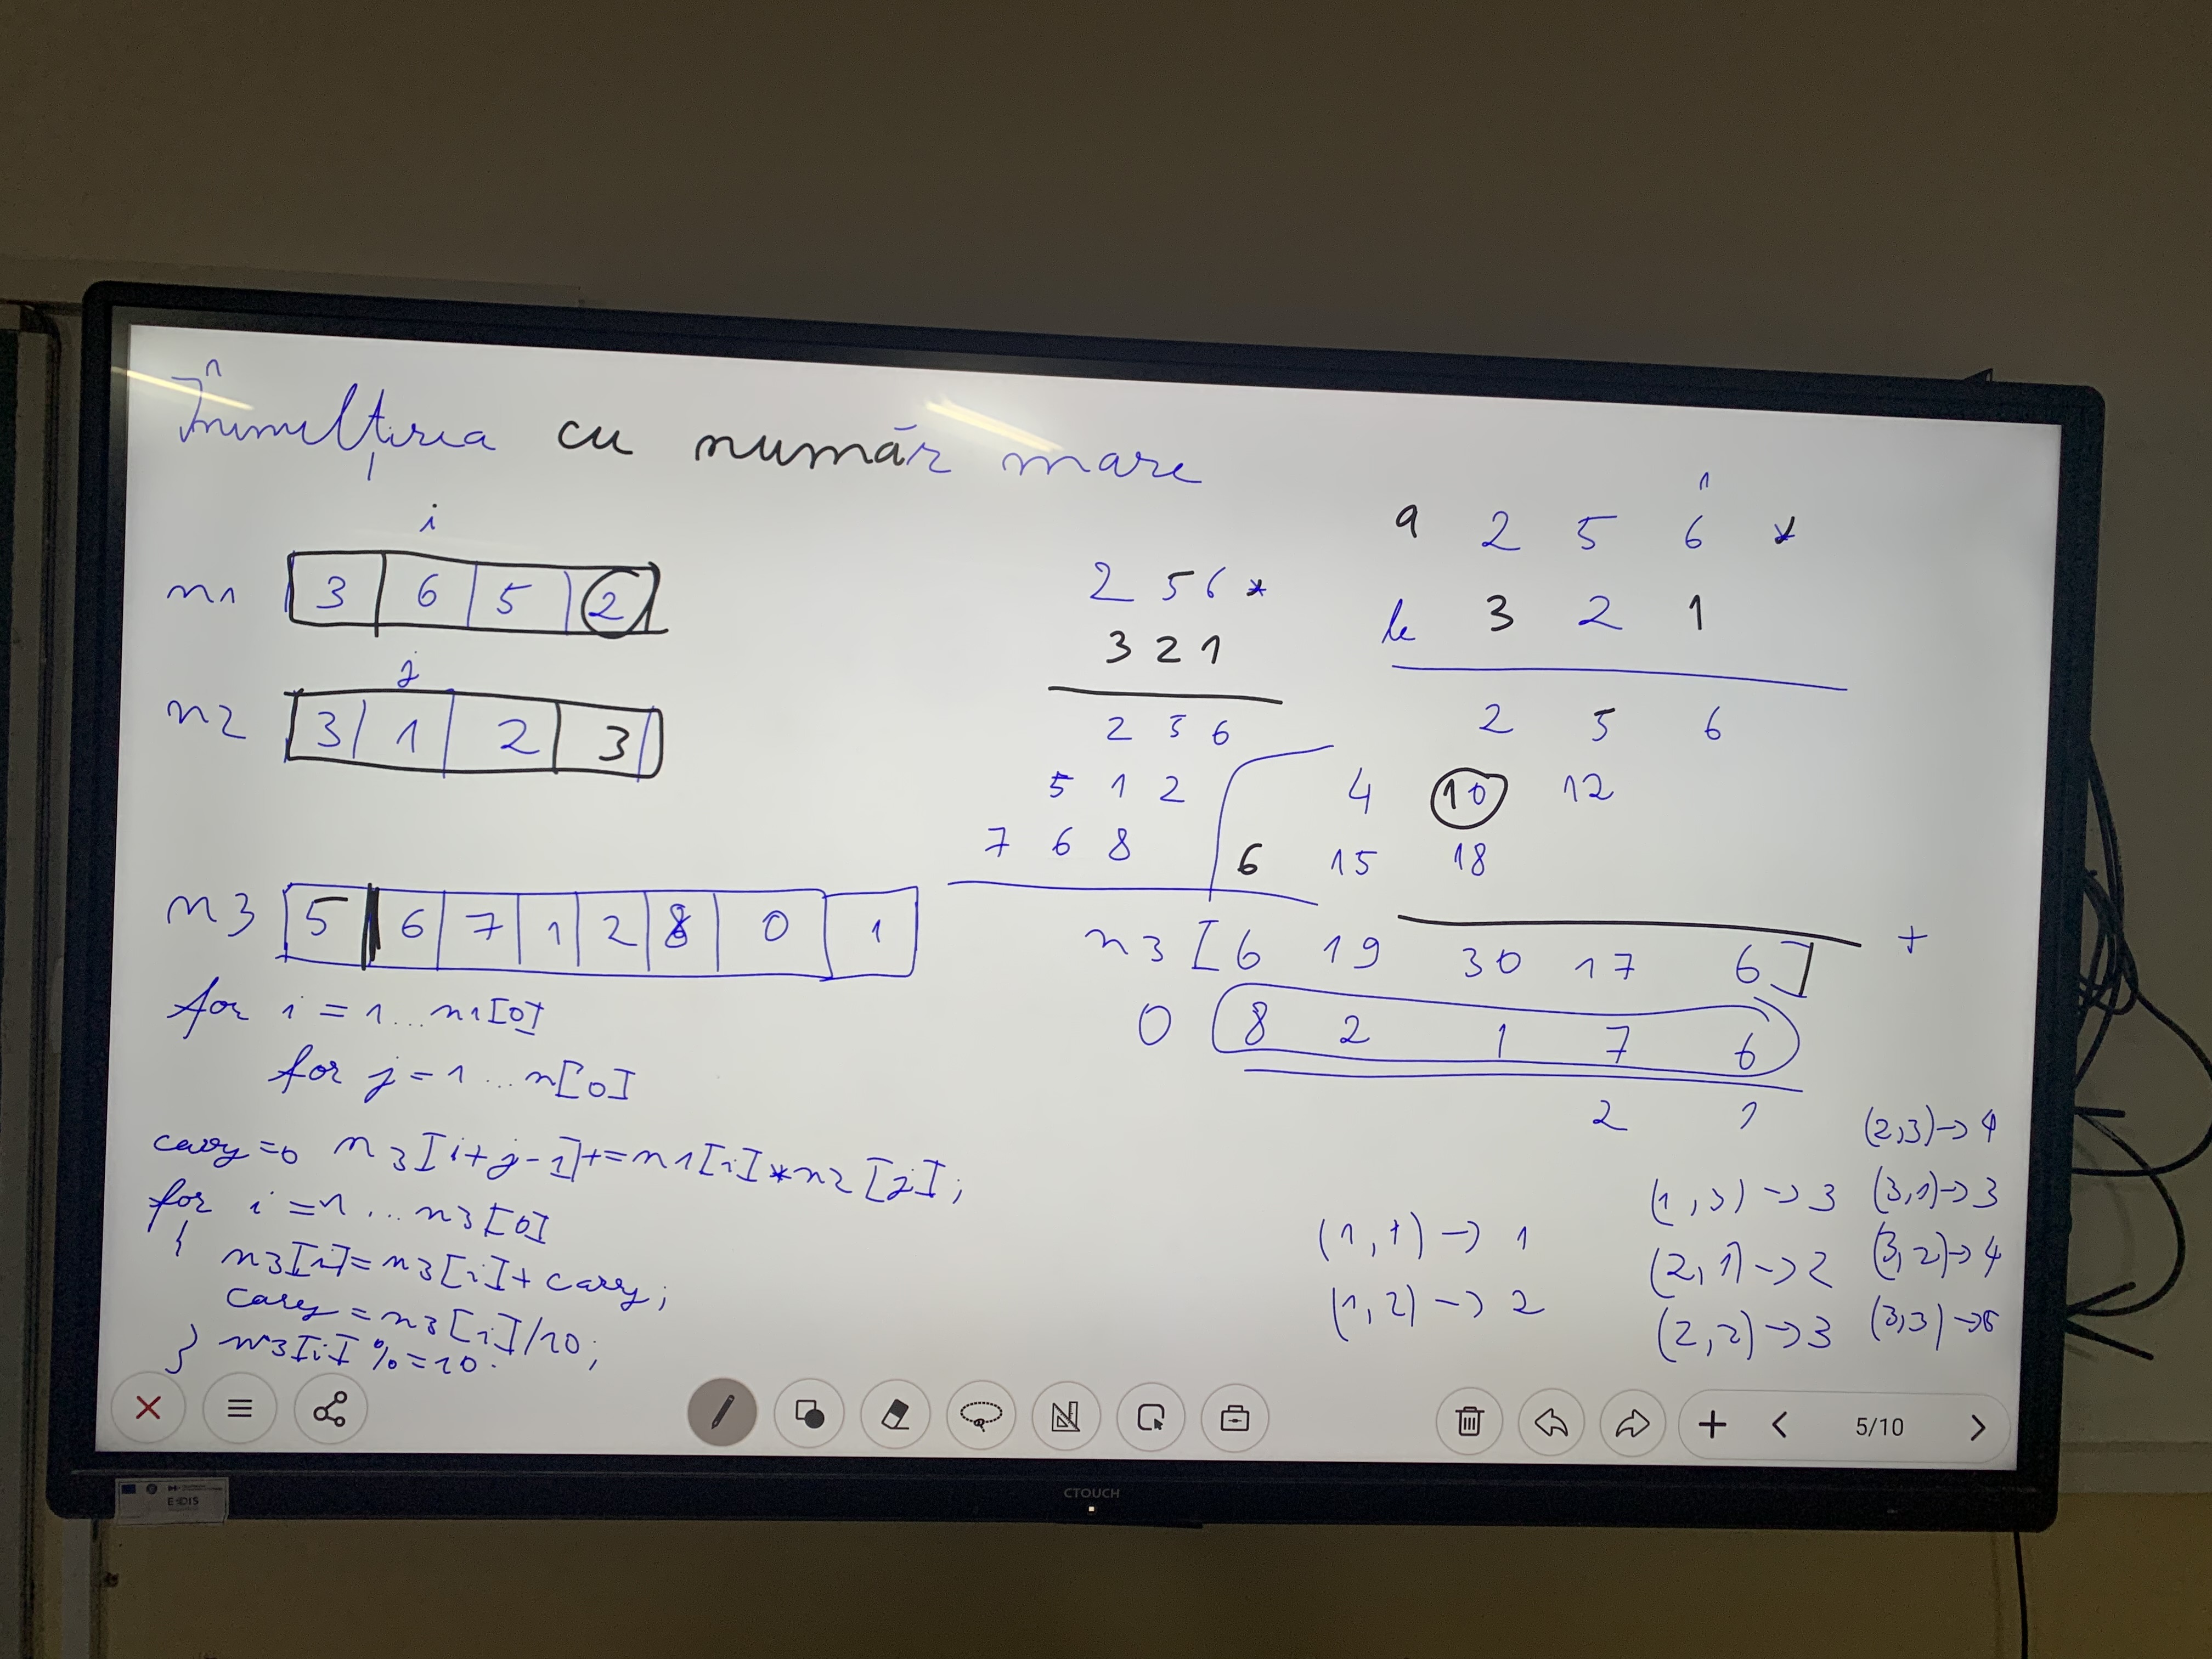 Înmulțirea cu număr mare
i
n1 3 6 5 2
j
n2 3 1 2 3
n3 5 6 7 1 2 8 0 1
for i = 1 ... n1[0]
for j = 1 ... n[0]
carry = 0 n3[i+j-1] += n1[i] * n2[j];
for i = 1 ... n3[0]
{ n3[i] = n3[i] + carry;
carry = n3[i]/10;
} n3[i] % = 10.
2 5 6 *
3 2 1
2 5 6
5 1 2
7 6 8
1
a 2 5 6 *
b 3 2 1
2 5 6
4 10 12
6 15 18
n3 [6 19 30 17 6] +
0 8 2 1 7 6
2 1
(1,1) -> 1
(1,2) -> 2
(1,3) -> 3
(2,1) -> 2
(2,2) -> 3
(2,3) -> 4
(3,1) -> 3
(3,2) -> 4
(3,3) -> 5
5/10
CTOUCH